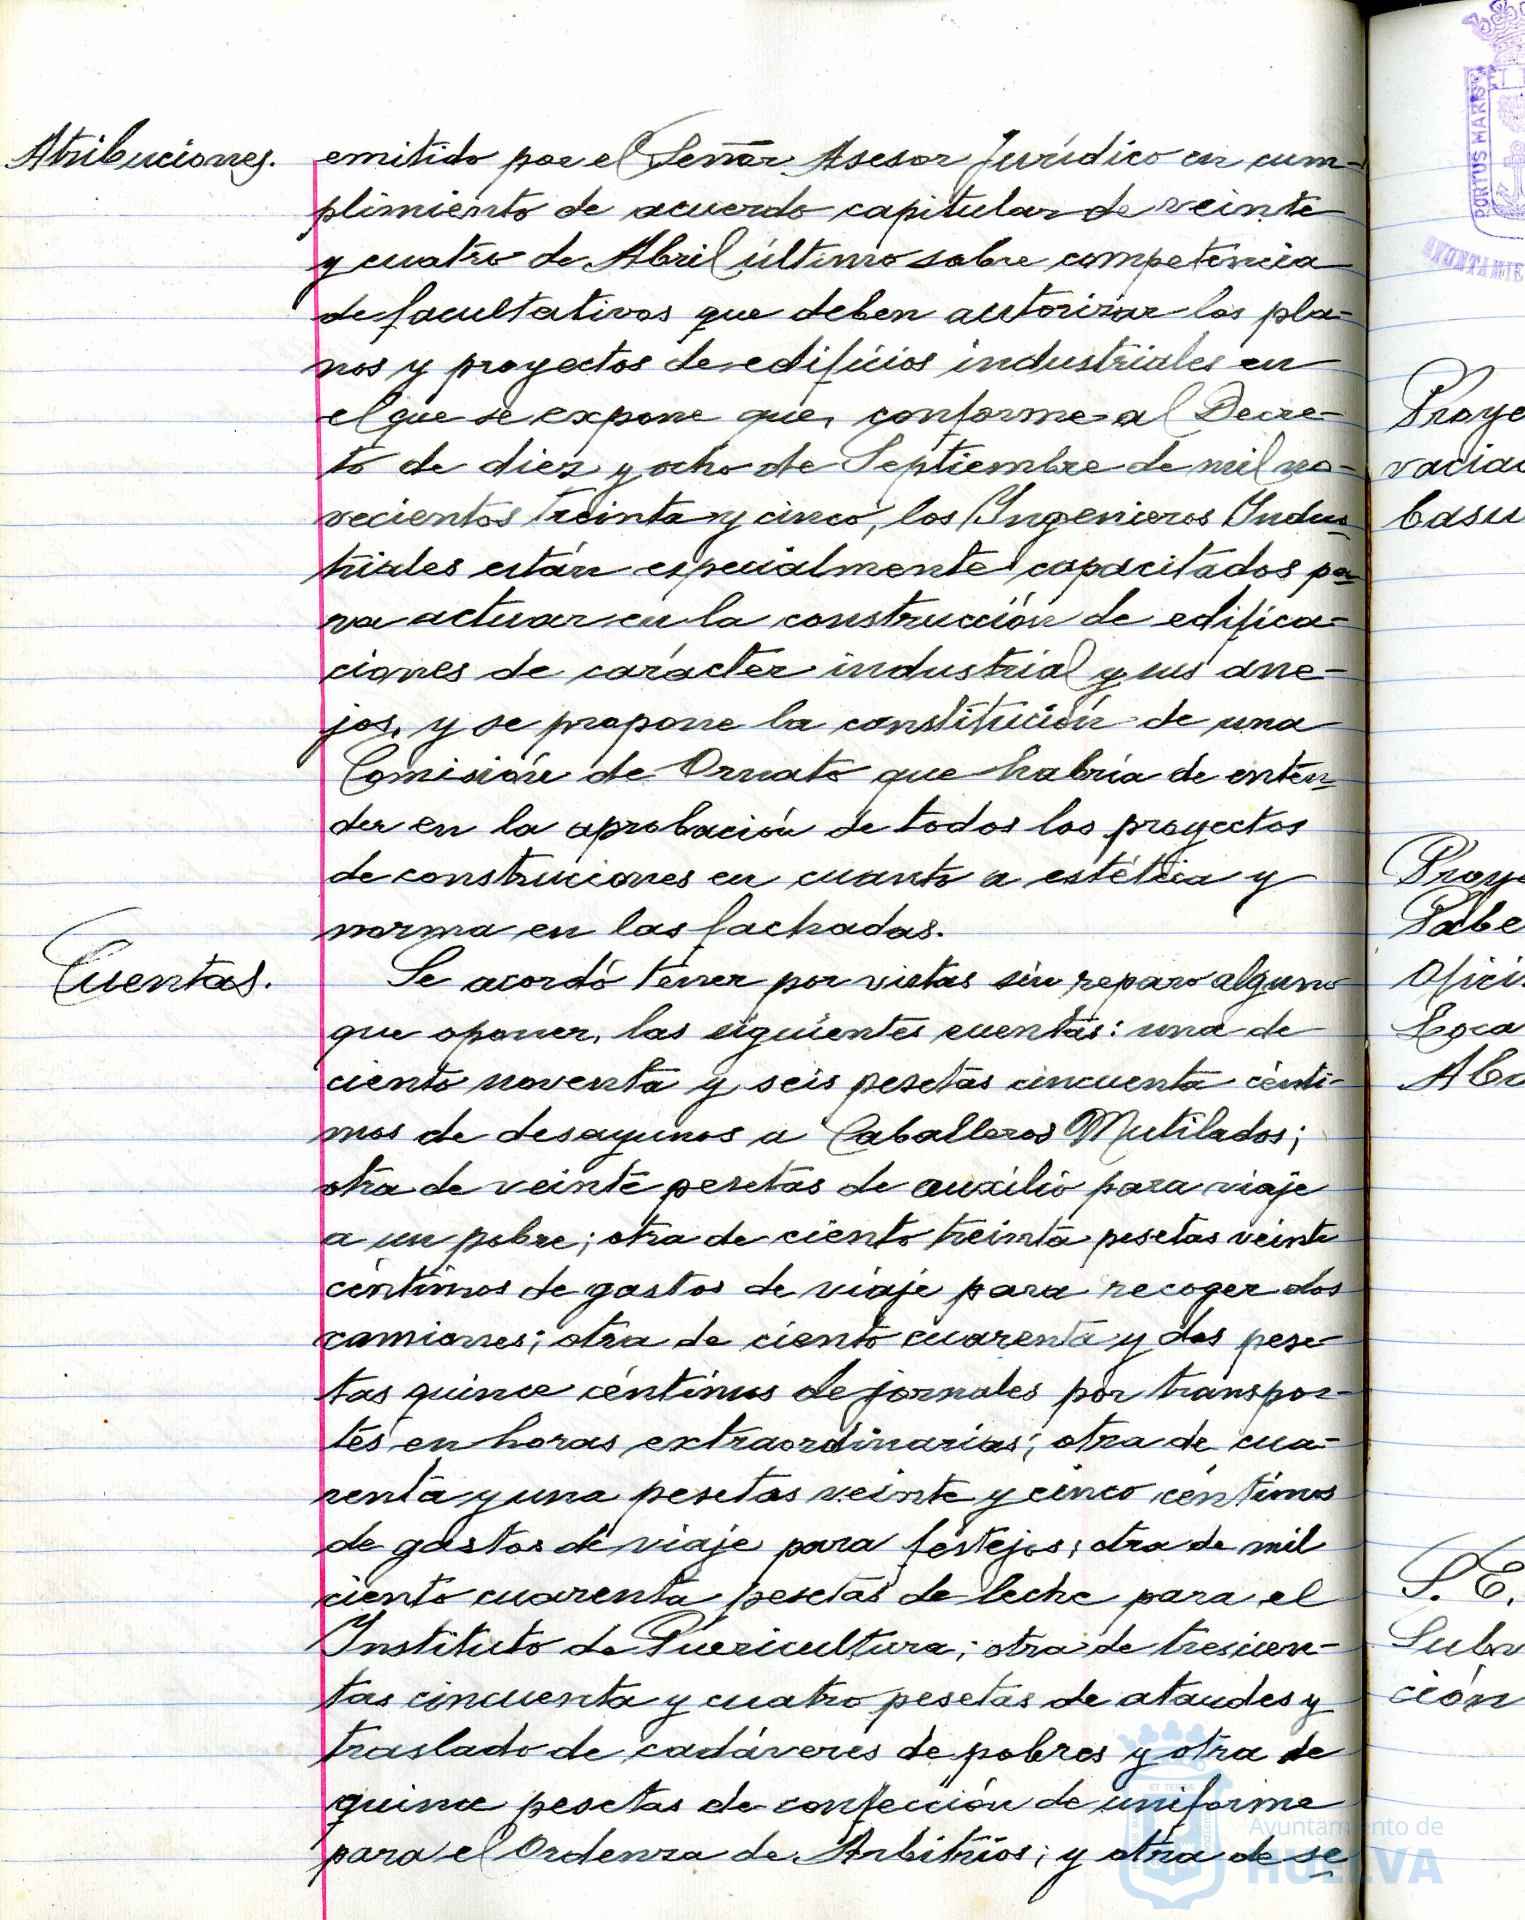 Atribuciones.
emitido por el Señor Asesor Jurídico en cum-
plimiento de acuerdo capitular de veinte
y cuatro de Abril último sobre competencia
de facultativos que deben autorizar los pla-
nos y proyectos de edificios industriales en
el que se expone que, conforme al Decre-
to de diez y ocho de Septiembre de mil no-
vecientos treinta y cinco, los Ingenieros Indus-
triales están especialmente capacitados pa-
ra actuar en la construcción de edifica-
ciones de carácter industrial y sus ane-
jos, y se propone la constitución de una
Comisión de Ornato que habría de enten-
der en la aprobación de todos los proyectos
de construciones en cuanto a estética y
norma en las fachadas.
Cuentas.
Se acordó tener por vistas sin reparo alguno
que oponer, las siguientes cuentas: una de
ciento noventa y seis pesetas cincuenta cénti-
mos de desayunos a Caballeros Mutilados;
otra de veinte pesetas de auxilio para viaje
a un pobre; otra de ciento treinta pesetas veinte
céntimos de gastos de viaje para recoger dos
camiones; otra de ciento cuarenta y dos pese-
tas quince céntimos de jornales por transpor-
tes en horas extraordinarias; otra de cua-
renta y una pesetas veinte y cinco céntimos
de gastos de viaje para festejos; otra de mil
ciento cuarenta pesetas de leche para el
Instituto de Puericultura; otra de trescien-
tas cincuenta y cuatro pesetas de ataudes y
traslado de cadáveres de pobres y otra de
quince pesetas de confección de uniforme
para el Ordenza de Arbitrios; y otra de se
Ayuntamiento de
HUELVA
PORTUS MARIS
ET T
AYUNTAMIE
Proye
vaciad
basu
Proye
Pabe
Ofici
Loca
Aba
S. E.
Subv
ción